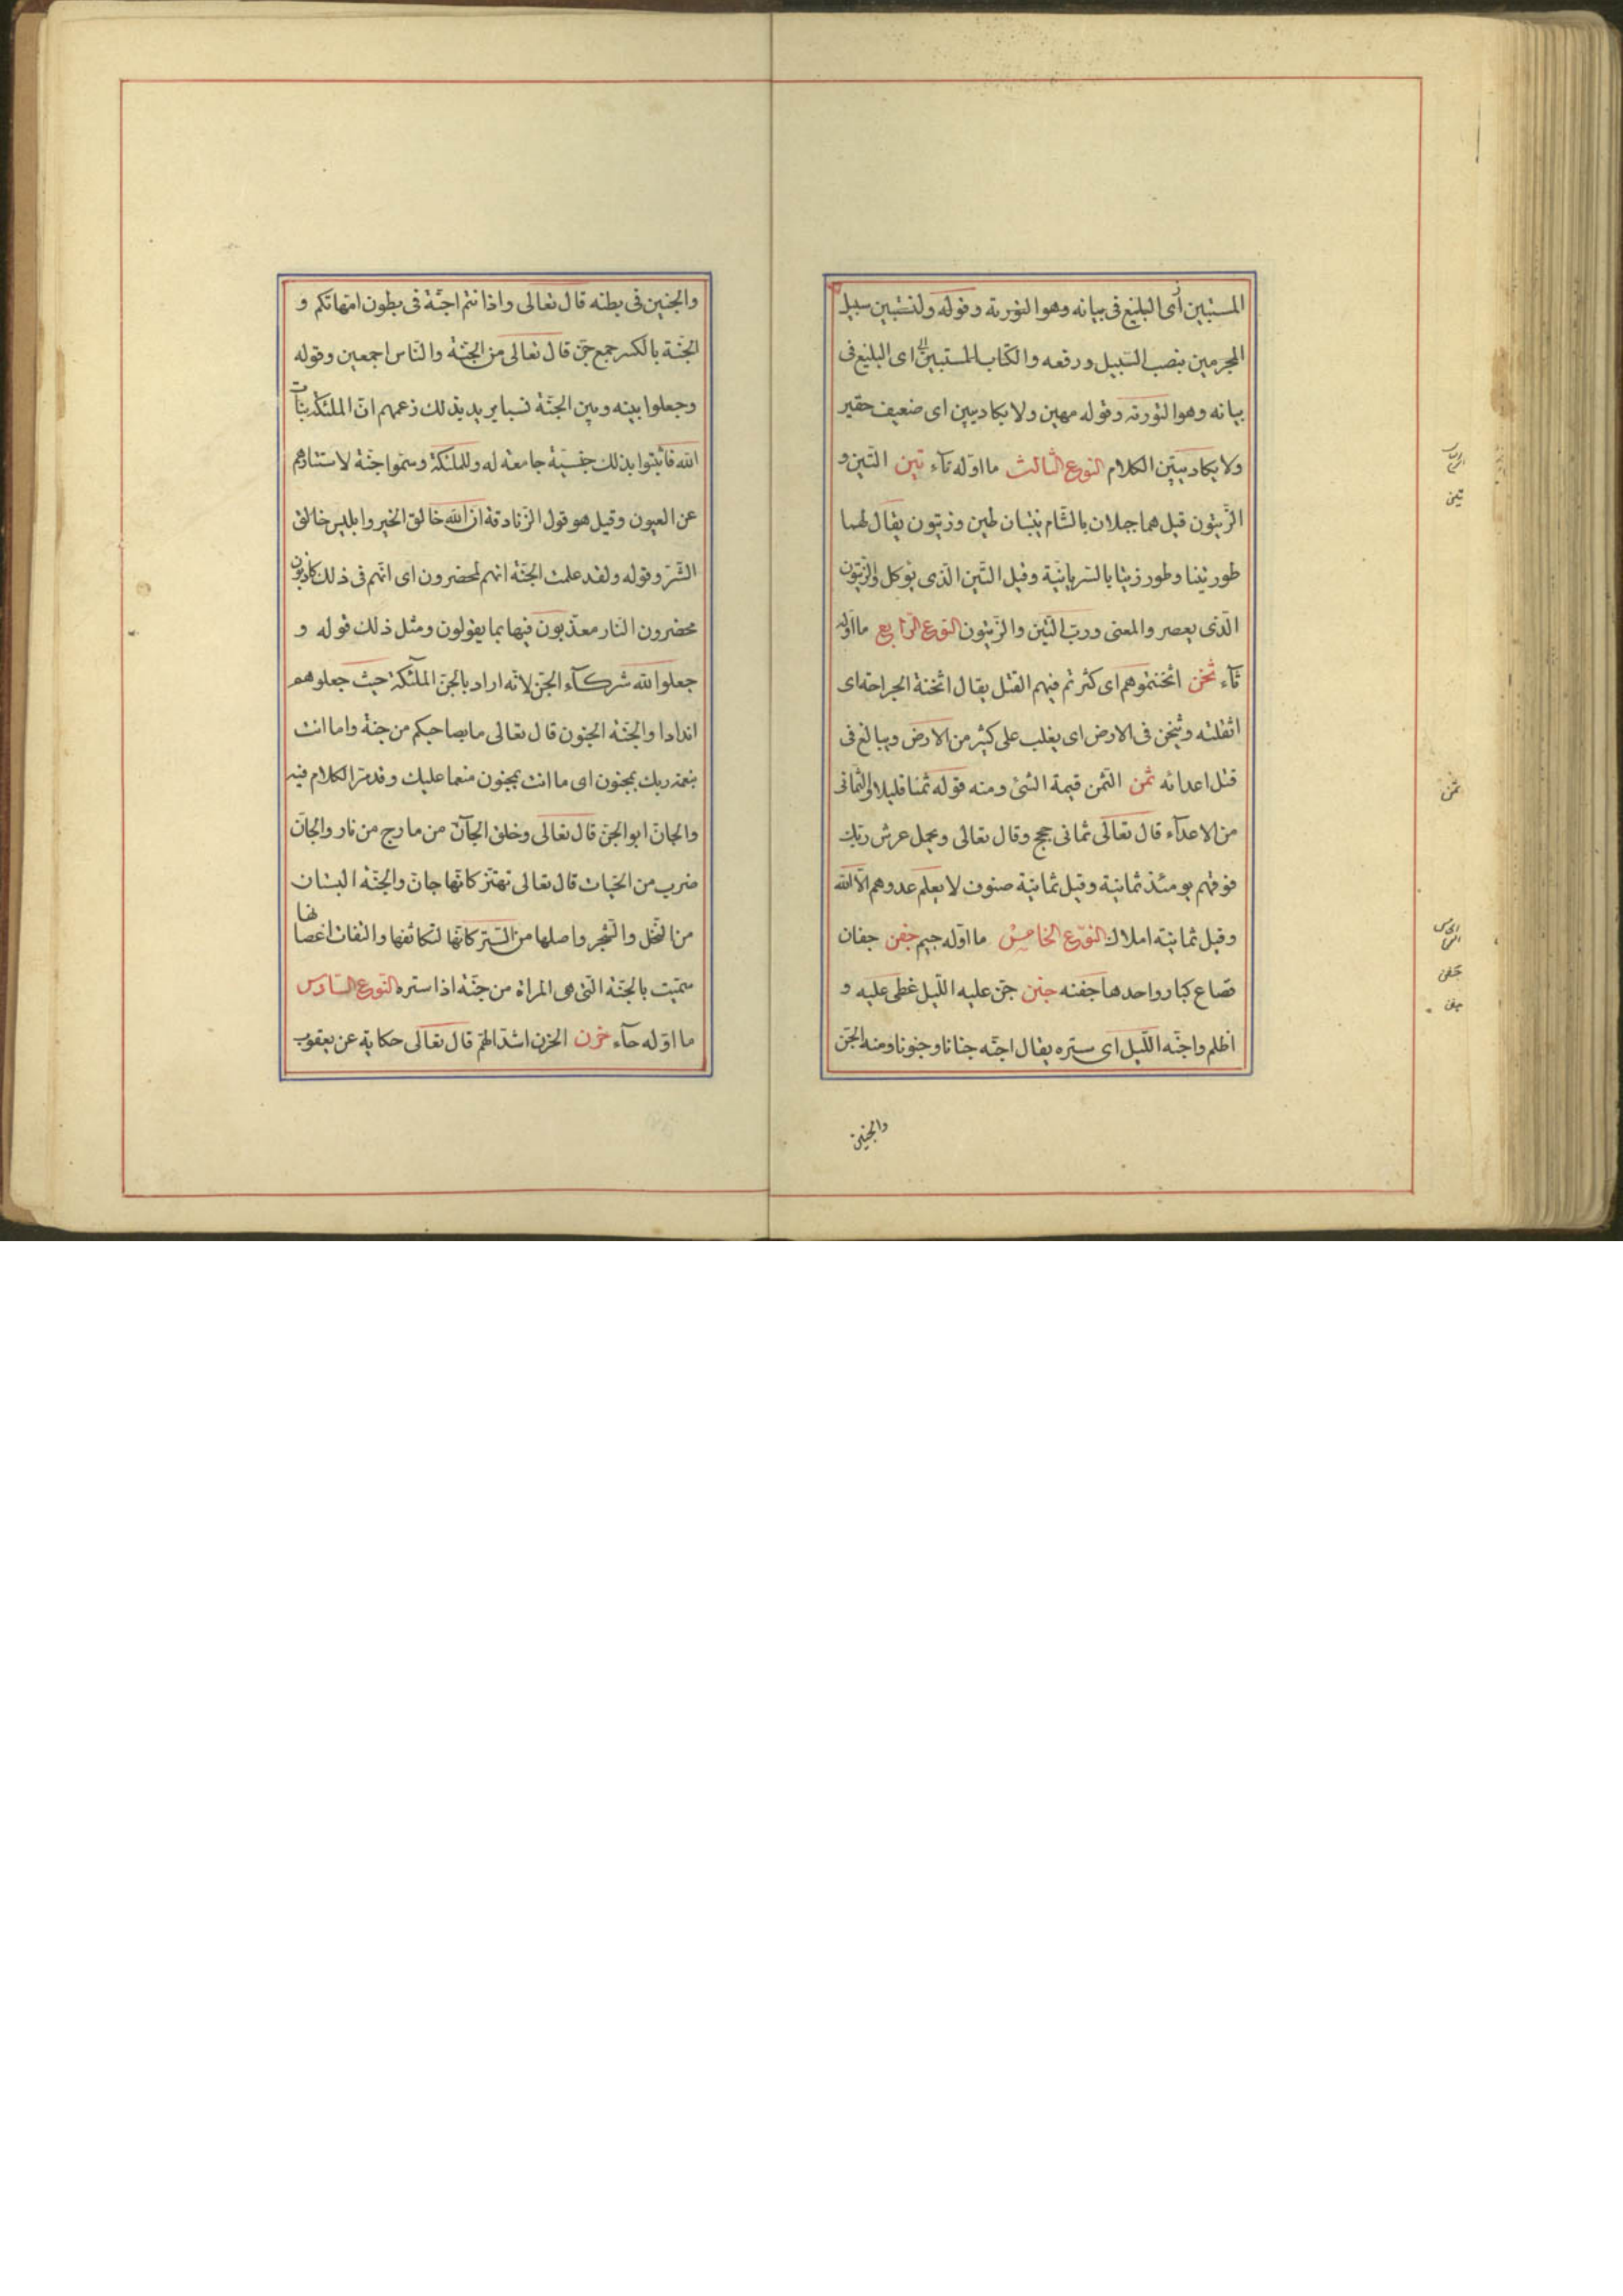 المستبين أى البليغ فى بيانه وهو التورية وقوله ولتستبين سبيل
المجرمين بنصب السّبيل ورفعه والكتاب المستبين اى البليغ فى
بيانه وهو التورية وقوله مهين ولا يكاد يبين اى ضعيف حقير
ولا يكاد يبيّن الكلام النوع الثالث ما اوّله تآء تين التين و
الزّيتون قيل هما جبلان بالشّام ينبتان لهين وزيتون يقال لهما
طور تينا وطور زيتا بالسّريانيّة وقيل التّين الّذى يؤكل والزيتون
الّذى يعصر والمعنى وربّ التّين والزّيتون النوع الرّابع ما اوّله
ثآء ثخن اثخنتموهم اى كثر ثم فيهم القتل يقال اثخنة الجراحة اى
اثقلته ويثخن فى الارض اى يغلب على كثير من الارض ويبالغ فى
قتل اعدائه ثمن الثّمن قيمة الشئ ومنه قوله ثمنا قليلا والثمانى
من الاعدآء قال تعالى ثمانى حجج وقال تعالى ويحمل عرش ربّك
فوقهم يومئذ ثمانية وقيل ثمانية صنوف لا يعلم عددهم الّا الله
وقيل ثمانية املاك النّوع الخامس ما اوّله جيم جفن جفان
قصاع كبار وواحدها جفنه جنن جنّ عليه اللّيل غطى عليه و
اظلم واجنّه اللّيل اى ستره يقال اجنّه جنانا وجنونا ومنه الجنّ
والجنين
ثمن
جفن
جنن
تين
والجنين فى بطنه قال تعالى واذ انتم اجنّة فى بطون امّهاتكم و
الجنّة بالكسر جمع جنّ قال تعالى من الجنّة والنّاس اجمعين وقوله
وجعلوا بينه وبين الجنّة نسبا يريد بذلك زعمهم انّ الملئكة بنات
الله فاثبتوا بذلك جنسيّة جامعة له وللملئكة وسمّوا جنّة لاستتارهم
عن العيون وقيل هو قول الزّنادقة انّ الله خالق الخير وابليس خالق
الشّرّ وقوله ولقد علمت الجنّة انهم لمحضرون اى انّهم فى ذلك كاذبون
محضرون النار معذّبون فيها بما يقولون ومثل ذلك قوله و
جعلوا لله شركآء الجنّ لانّه اراد بالجنّ الملآئكة حيث جعلوهم
اندادا والجنّة الجنون قال تعالى ما بصاحبكم من جنّة واما انت
بنعمة ربك بمجنون اى ما انت بمجنون منعما عليك وقد مرّ الكلام فيه
والجانّ ابو الجنّ قال تعالى وخلق الجآنّ من مارج من نار والجانّ
ضرب من الحيّات قال تعالى تهتزّ كانّها جانّ والجنّة البستان
من النّخل والشّجر واصلها من السّتر كانّها لتكاثفها والتفات اغصانها
سمّيت بالجنّة الّتى هى المراة من جنّة اذا ستره النّوع السّادس
ما اوّله حآء حزن الحزن اشدّ الهمّ قال تعالى حكاية عن يعقوب